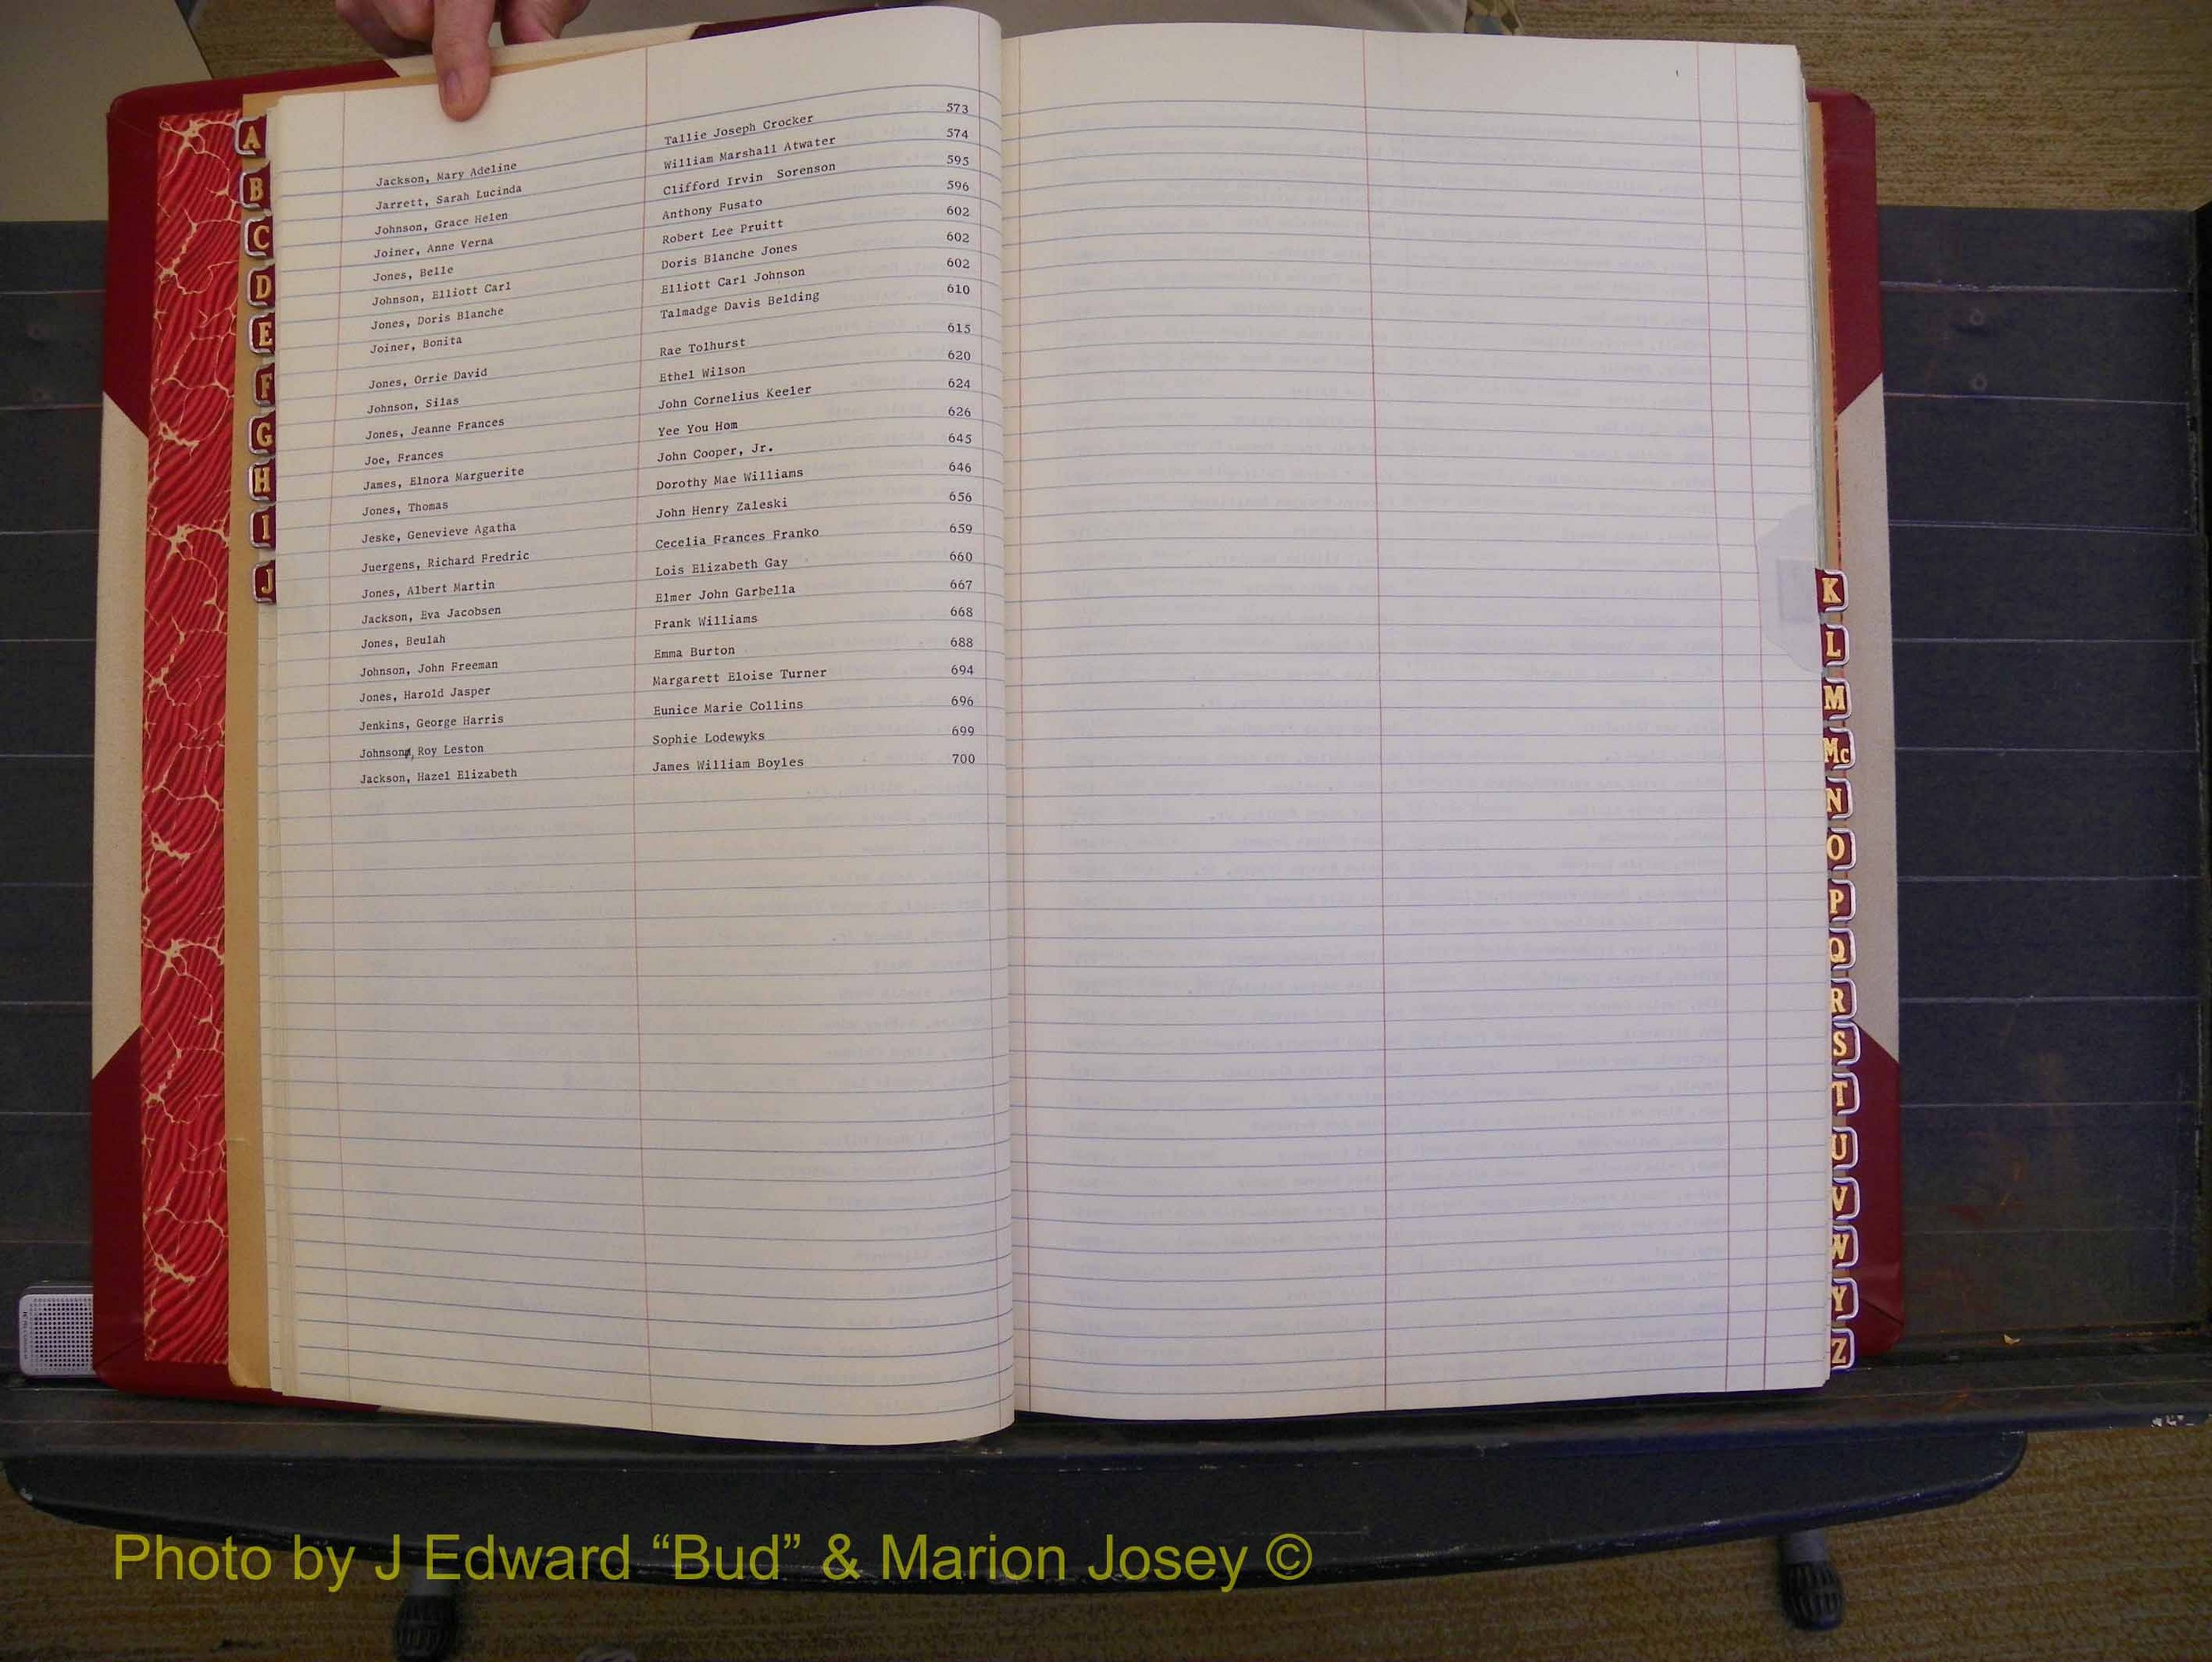 Jackson, Mary Adeline Tallie Joseph Crocker 573
Jarrett, Sarah Lucinda William Marshall Atwater 574
Johnson, Grace Helen Clifford Irvin Sorenson 595
Joiner, Anne Verna Anthony Fusato 596
Jones, Belle Robert Lee Pruitt 602
Johnson, Elliott Carl Doris Blanche Jones 602
Jones, Doris Blanche Elliott Carl Johnson 602
Joiner, Bonita Talmadge Davis Belding 610
Jones, Orrie David Rae Tolhurst 615
Johnson, Silas Ethel Wilson 620
Jones, Jeanne Frances John Cornelius Keeler 624
Joe, Frances Yee You Hom 626
James, Elnora Marguerite John Cooper, Jr. 645
Jones, Thomas Dorothy Mae Williams 646
Jeske, Genevieve Agatha John Henry Zaleski 656
Juergens, Richard Fredric Cecelia Frances Franko 659
Jones, Albert Martin Lois Elizabeth Gay 660
Jackson, Eva Jacobsen Elmer John Garbella 667
Jones, Beulah Frank Williams 668
Johnson, John Freeman Emma Burton 688
Jones, Harold Jasper Margarett Eloise Turner 694
Jenkins, George Harris Eunice Marie Collins 696
Johnson, Roy Leston Sophie Lodewyks 699
Jackson, Hazel Elizabeth James William Boyles 700
A
B
C
D
E
F
G
H
I
J
K
L
M
Mc
N
O
P
Q
R
S
T
U
V
W
Y
Z
Photo by J Edward “Bud” & Marion Josey ©